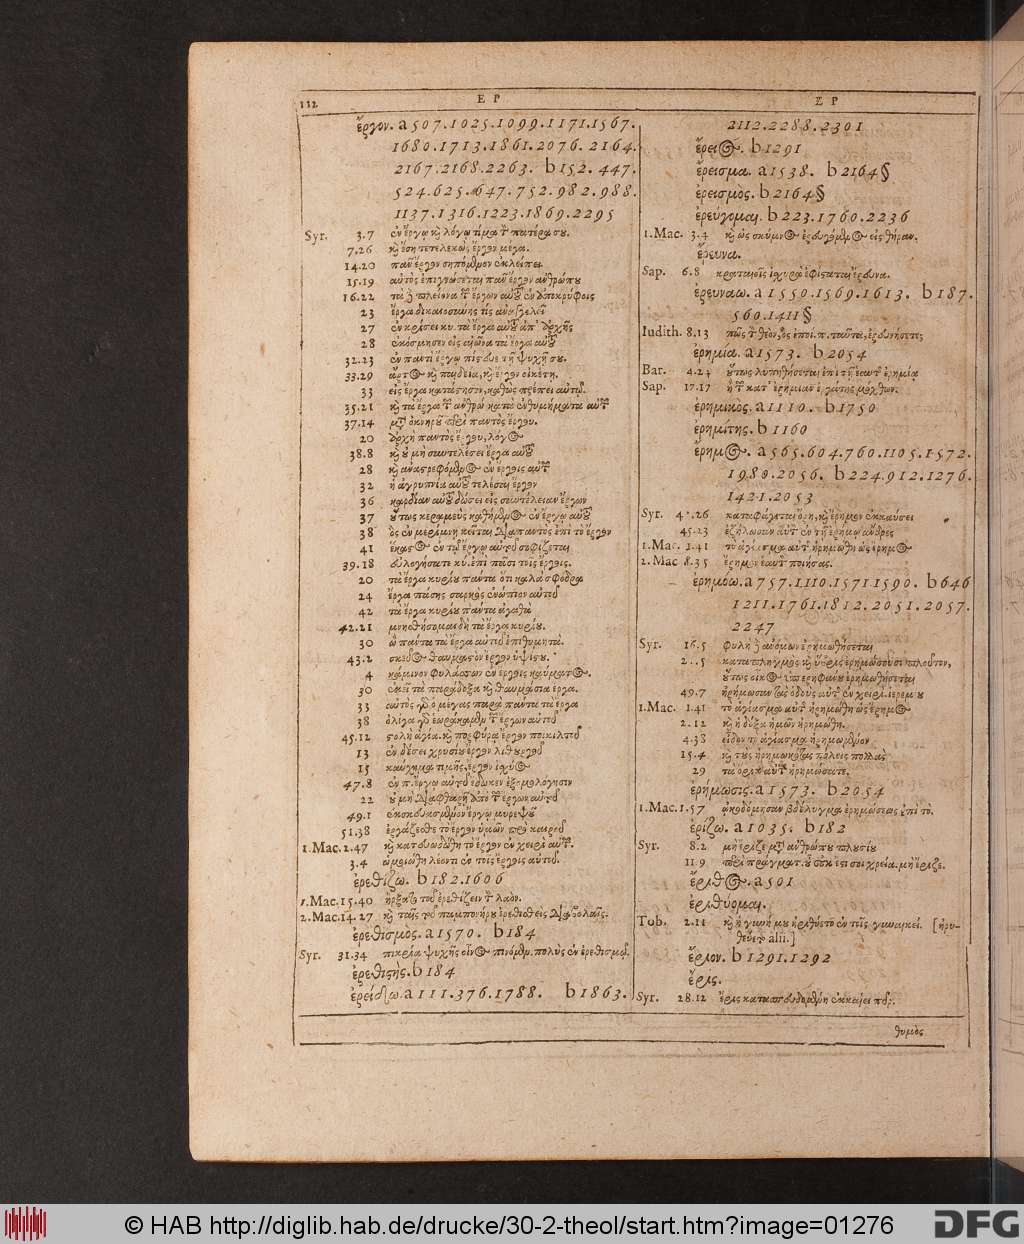 112
Ε Ρ
Ε Ρ
ἔργον. a 507.1025.1099.1171.1567.
1680.1713.1861.2076.2164.
2167.2168.2263. b 152. 447.
524.625. 647.752.982.988.
1137.1316.1223.1869.2295
Syr. 3.7 ἐν ἔργῳ καὶ λόγῳ τίμα τὸν πατέρα σου.
7.26 καὶ ἔσῃ τετελεκὼς ἔργον μέγα.
14.20 πᾶν ἔργον σηπόμενον ἐκλείπει.
15.19 αὐτὸς ἐπιγνώσεται πᾶν ἔργον ἀνθρώπου
16.22 τὰ πλείονα τῶν ἔργων αὐτοῦ ἐν ἀποκρύφοις
23 ἔργα δικαιοσύνης τίς ἀναγγελεῖ
27 ἐν κρίσει κυ. τὰ ἔργα αὐτοῦ ἀπ' ἀρχῆς
28 ἐκόσμησεν εἰς αἰῶνα τὰ ἔργα αὐτοῦ
32.23 ἐν παντὶ ἔργῳ πίστευε τῇ ψυχῇ σου.
33.29 ἄρτος καὶ παιδεία, καὶ ἔργον οἰκέτῃ.
33 εἰς ἔργα κατάστησον, καθὼς πρέπει αὐτῷ.
35.21
37.14
20 ἀρχὴ παντὸς ἔργου, λόγος
38.8 καὶ οὐ μὴ συντελέσει ἔργα αὐτοῦ
28 καὶ ἀναστρεφόμενος ἐν ἔργοις αὐτῶν
32 ἡ ἀγρυπνία αὐτοῦ τελέσαι ἔργον
36 καρδίαν αὐτοῦ δώσει εἰς συντέλειαν ἔργων
37 οὕτως κεραμεὺς καθήμενος ἐν ἔργῳ αὐτοῦ
38 ὃς ἐν μερίμνῃ κεῖται διαπαντὸς ἐπὶ τὸ ἔργον
41 ἕκαστος ἐν τῷ ἔργῳ αὐτοῦ σοφίζεται
39.18 εὐλογήσατε κυ. ἐπὶ πᾶσι τοῖς ἔργοις.
20 τὰ ἔργα κυρίου πάντα ὅτι καλὰ σφόδρα
24 ἔργα πάσης σαρκὸς ἐνώπιον αὐτοῦ
42 τὰ ἔργα κυρίου πάντα ἀγαθὰ
42.21 μνησθήσομαι δὴ τὰ ἔργα κυρίου.
30 ὡς πάντα τὰ ἔργα αὐτοῦ ἐπιθυμητά.
43.2 σκεῦος θαυμαστὸν ἔργον ὑψίστου.
4 κάμινον φυλάσσων ἐν ἔργοις καύματος.
30 ἐκεῖ τὰ παράδοξα καὶ θαυμάσια ἔργα.
33 αὐτὸς γὰρ ὁ μέγας παρὰ πάντα τὰ ἔργα
38 ὀλίγα γὰρ ἑωράκαμεν τῶν ἔργων αὐτοῦ
45.12 στολῇ ἁγίᾳ. καὶ πορφύρᾳ ἔργον ποικιλτοῦ
13 ἐν δέσει χρυσίου ἔργον λιθουργοῦ
15 καύχημα τιμῆς, ἔργον ἰσχύος
47.8 ἐν π. ἔργῳ αὐτοῦ ἔδωκεν ἐξομολόγησιν
22 οὐ μὴ διαφθαρῇ ἀπὸ τῶν ἔργων αὐτοῦ
49.1 ἐσκευασμένον ἔργῳ μυρεψοῦ
51.38 ἐργάζεσθε τὸ ἔργον ὑμῶν πρὸ καιροῦ
1. Mac. 2.47 καὶ κατευωδώθη τὸ ἔργον ἐν χειρὶ αὐτῶν.
3.4 ὡμοιώθη λέοντι ἐν τοῖς ἔργοις αὐτοῦ.
ἐρεθίζω. b 182.1606
1. Mac. 15.40 ἤρξατο τοῦ ἐρεθίζειν τὸν λαόν.
2. Mac. 14.27 καὶ ταῖς τοῦ παμπονήρου ἐρεθισθεὶς διαβολαῖς.
ἐρεθισμὸς. a 1570. b 184
Syr. 31.34 πικρία ψυχῆς οἶνος πινόμεν. πολὺς ἐν ἐρεθισμῷ.
ἐρεθιστὴς. b 184
ἐρείδω. a 111.376.1788. b 1863.
2112.2288.2301
ἔρεισις. b 1291
ἔρεισμα. a 1538. b 2164§
ἐρεισμὸς. b 2164§
ἐρεύγομαι. b 223.1760.2236
1. Mac. 3.4 καὶ ὡς σκύμνος ἐρευγόμενος εἰς θήραν.
ἔρευνα.
Sap. 6.8 κραταιοῖς ἰσχυρὰ ἐφίσταται ἔρευνα.
ἐρευνάω. a 1550.1569.1613. b 187.
560.1411§
Iudith. 8.13
ἐρημία. a 1573. b 2054
Bar. 4.24 οὕτως λυπηθήσεται ἐπὶ τῇ ἑαυτῆς ἐρημίᾳ
Sap. 17.17 ἢ τῶν κατ' ἐρημίαν ἐργάτης μόχθων.
ἐρημικὸς. a 1110. b 1750
ἐρημίτης. b 1160
ἔρημος. a 565.604.760.1105.1572.
1989.2056. b 224.912.1276.
1421.2053
Syr. καταφάγεται ὄρη, καὶ ἔρημον ἐκκαύσει
45.23 ἐζήλωσαν αὐτὸν ἐν τῇ ἐρήμῳ ἄνδρες
1. Mac. 1.41 τὸ ἁγίασμα αὐτῆς ἠρημώθη ὡς ἔρημος
2. Mac 8.35 ἔρημον ἑαυτὸν ποιήσας.
ἐρημόω. a 757.1110.1571.1590. b 646
1211.1761.1812.2051.2057.
2247
Syr. 16.5 φυλὴ ἀνόμων ἐρημωθήσεται
καταπληγμὸς καὶ ὕβρις ἐρημώσουσι πλοῦτον,
οὕτως οἶκος ὑπερηφάνου ἐρημωθήσεται
49.7 ἠρήμωσαν τὰς ὁδοὺς αὐτῆς ἐν χειρὶ ἱερεμίου
1. Mac. 1.41 τὸ ἁγίασμα αὐτῆς ἠρημώθη ὡς ἔρημος
2.12 καὶ ἡ δόξα ἡμῶν ἠρημώθη.
4.38 εἶδον τὸ ἁγίασμα ἠρημωμένον
15.4 καὶ τοὺς ἠρημωκότας πόλεις πολλὰς
29 τὰ ὅρια αὐτῶν ἠρημώσατε.
ἐρήμωσις. a 1573. b 2054
1. Mac. 1.57 ᾠκοδόμησαν βδέλυγμα ἐρημώσεως ἐπὶ τὸ.
ἐρίζω. a 1035. b 182
Syr. 8.2 μὴ ἔριζε μετὰ ἀνθρώπου πλουσίου
11.9 περὶ πράγματ. οὗ οὐκ ἔστι σοι χρεία. μὴ ἔριζε.
ἔριθος. a 501
ἐριθύομαι.
Tob. 2.11 [ἠρι-
θεύετο alii.]
ἔριον. b 1291.1292
ἔρις.
Syr. 28.12 ἔρις κατασπευδομένη ἐκκαίει πῦρ.
θυμὸς
© HAB http://diglib.hab.de/drucke/30-2-theol/start.htm?image=01276
DFG